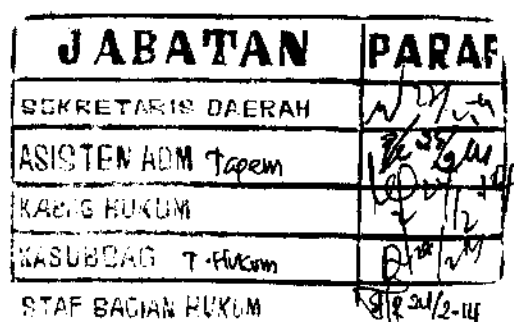 JABATAN PARAF
SEKRETARIS DAERAH
ASISTEN ADM Tapem
KABAG HUKUM
KASUBBAG T.Hukum
STAF BAGIAN HUKUM 24/2-14